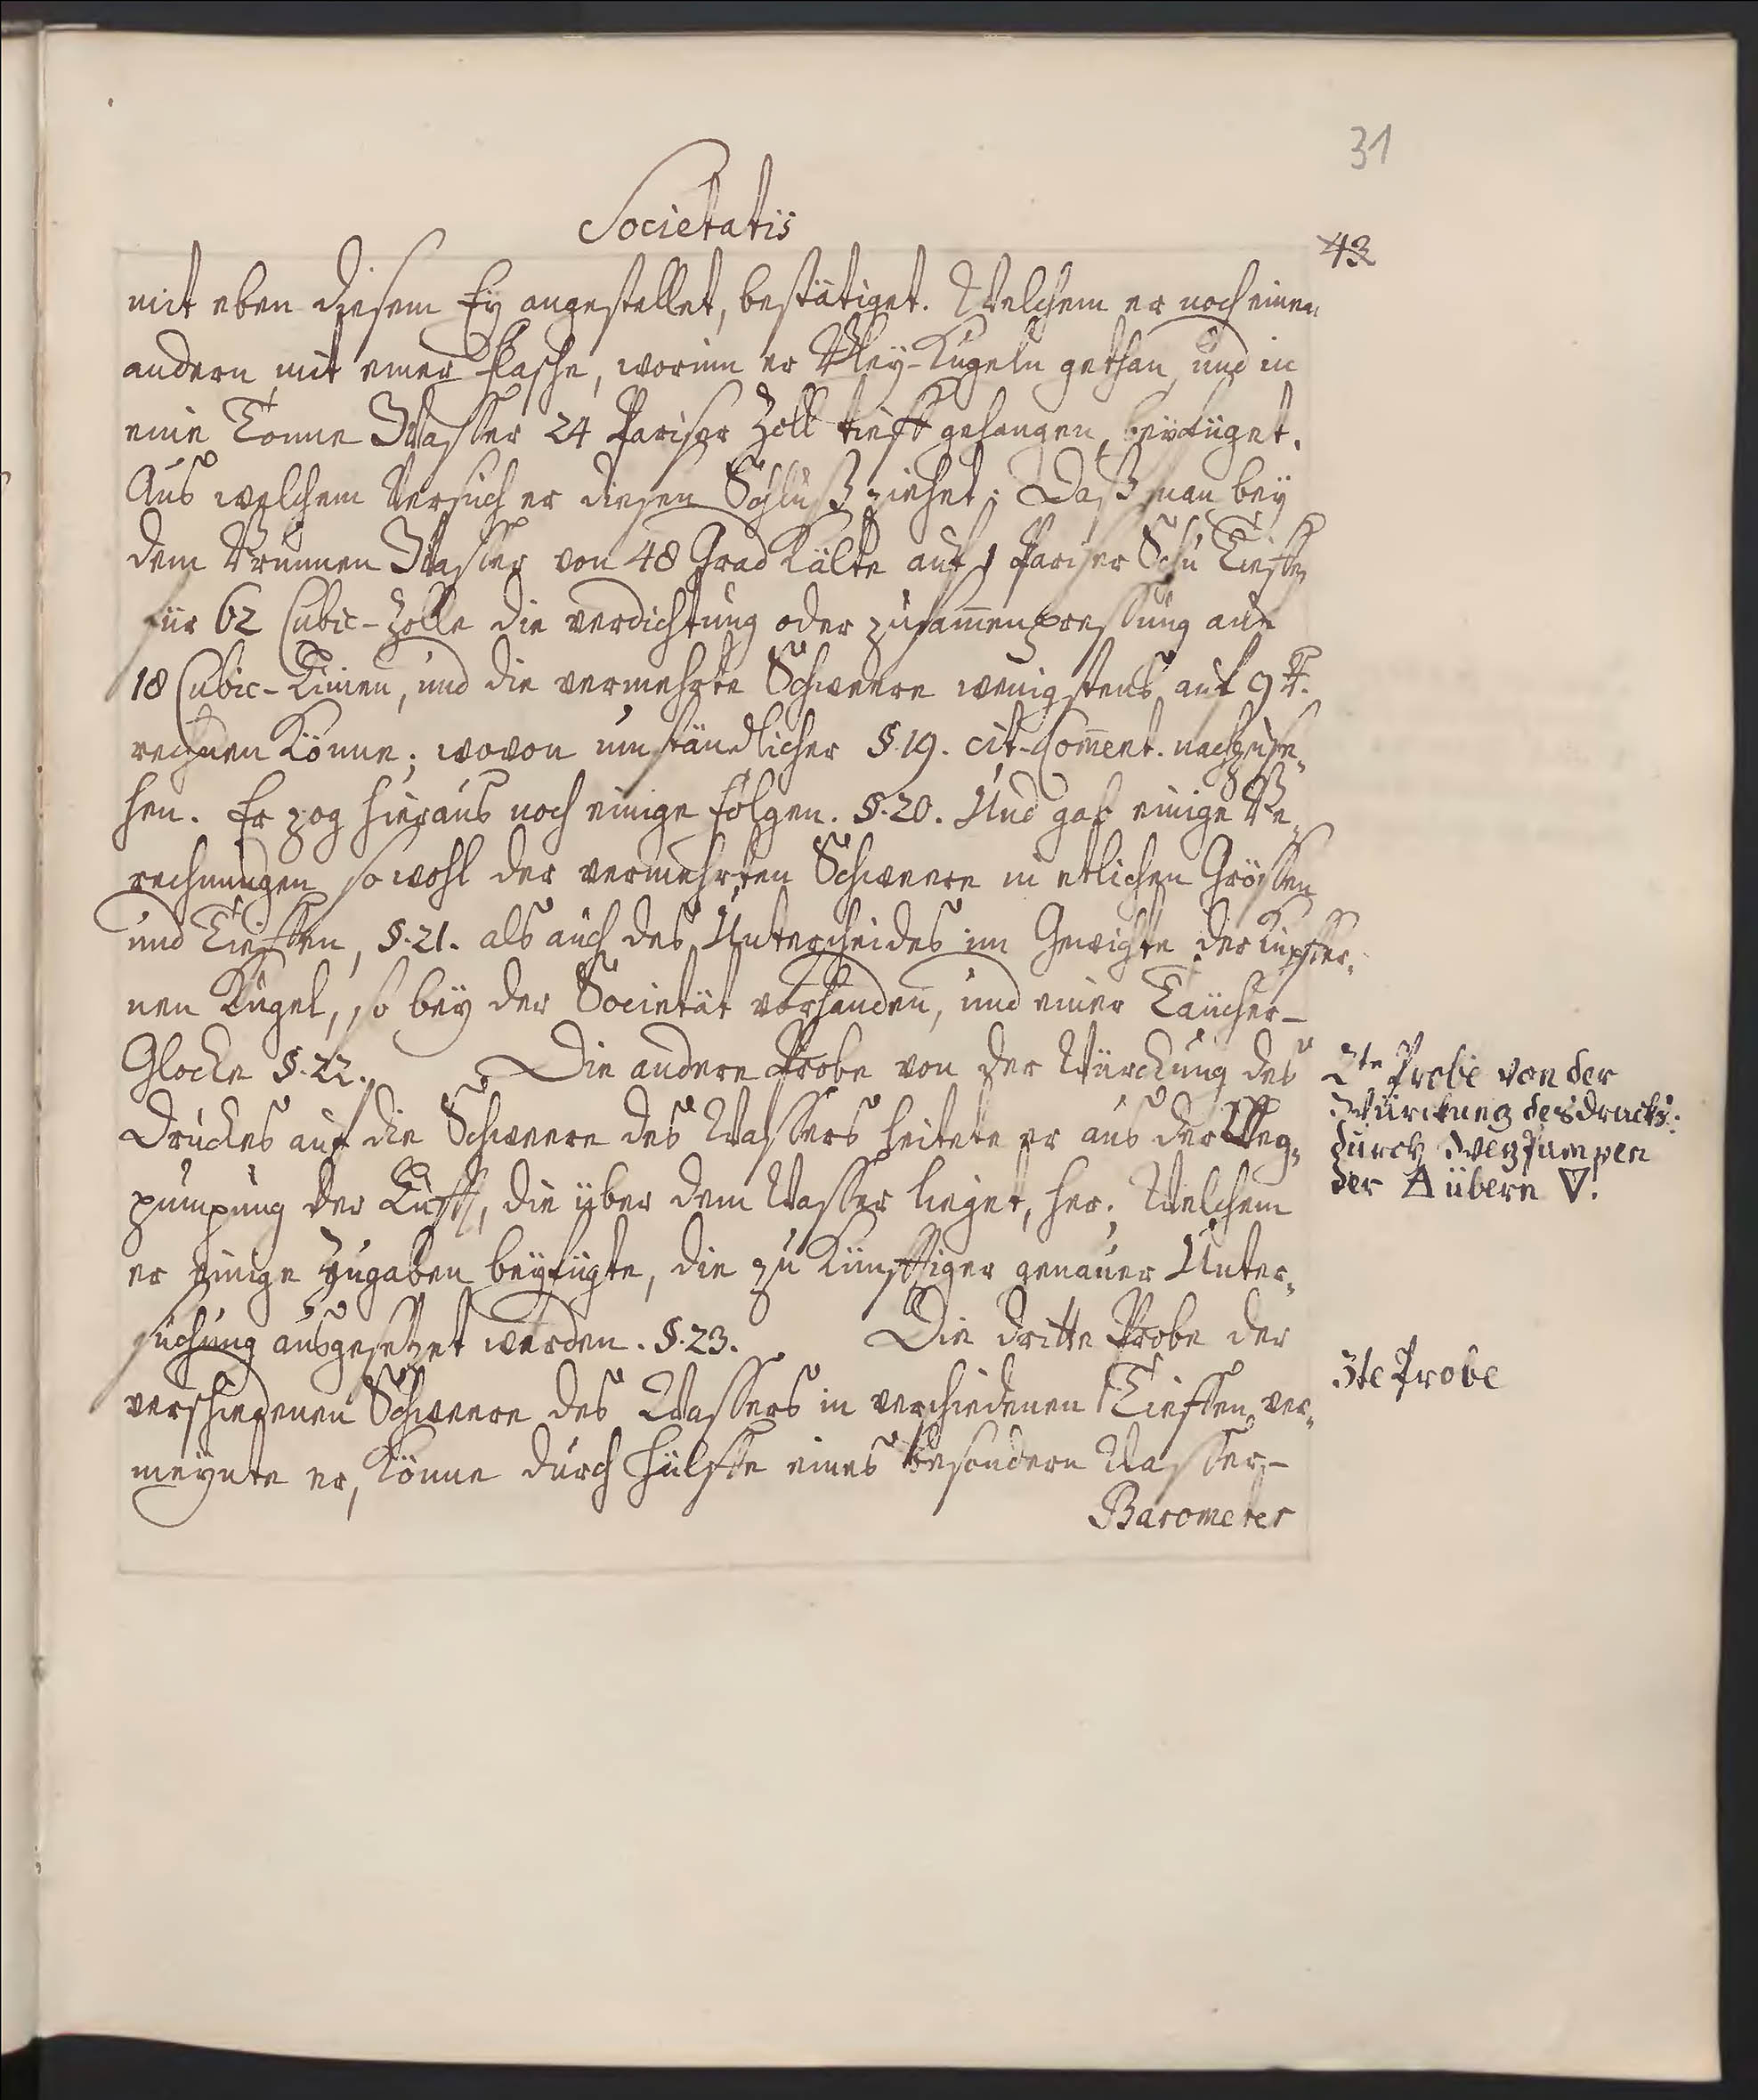 31
Societatis
43
mit eben diesem Ey angestellet, bestätiget. Welchem er noch einen
andern mit einer Flasche, worinn er Bley-Kugeln gethan, und in
eine Tonne Wasser 24 Pariser Zoll tieff gehangen, beyfüget.
Aus welchem Versuch er diesen Schluß ziehet; Daß man bey
dem Brunnen Wasser von 48 Grad Kälte auf 1 Pariser Schu Tieffe
für 62 Cubic-Zolle die verdichtung oder zusam̅enpressung auf
18 Cubic-Linien, und die vermehrte Schweere wenigstens auf 9
rechnen könne; wovon umständlicher §. 19. cit. Com̅ent. nachzuse-
hen. Er zog hieraus noch einige folgen. §. 20. Und gab einige Be-
rechnungen sowohl der vermehrten Schweere in etlichen Grössen
und Tieffen, §. 21. als auch des Unterscheides im Gewichte der Kupffer-
nen Kugel, so bey der Societät vorhanden, und einer Taucher-
Glocke §. 22. Die andere Probe von der Würckung des
Druckes auf die Schweere des Wassers leitete er aus der Weg-
pumpung der Lufft, die über dem Wasser lieget, her; Welchem
er einige Zugaben beyfügte, die zu künfftiger genauer Unter-
suchung ausgesetzet werden. §. 23. Die dritte Probe der
verschiedenen Schweere des Wassers in verschiedenen Tieffen, ver-
meynte er, könne durch hülffe eines besondern Wasser-
Barometer
2te Probe von der
Würckung des drucks.
durch wegpumpen
der 🜁 übern 🜄.
3te Probe